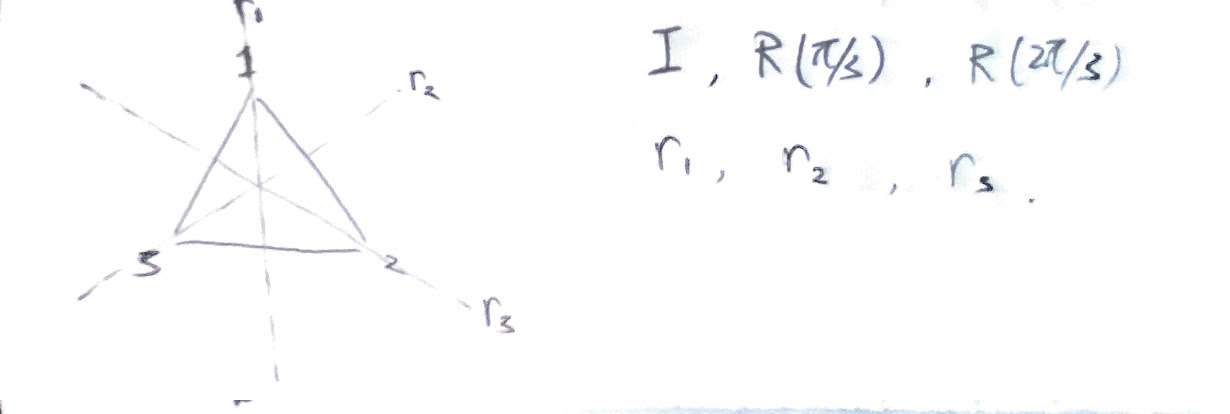 r₁
1
r₂
3
2
r₃
I, R(π/3), R(2π/3)
r₁, r₂, r₃.